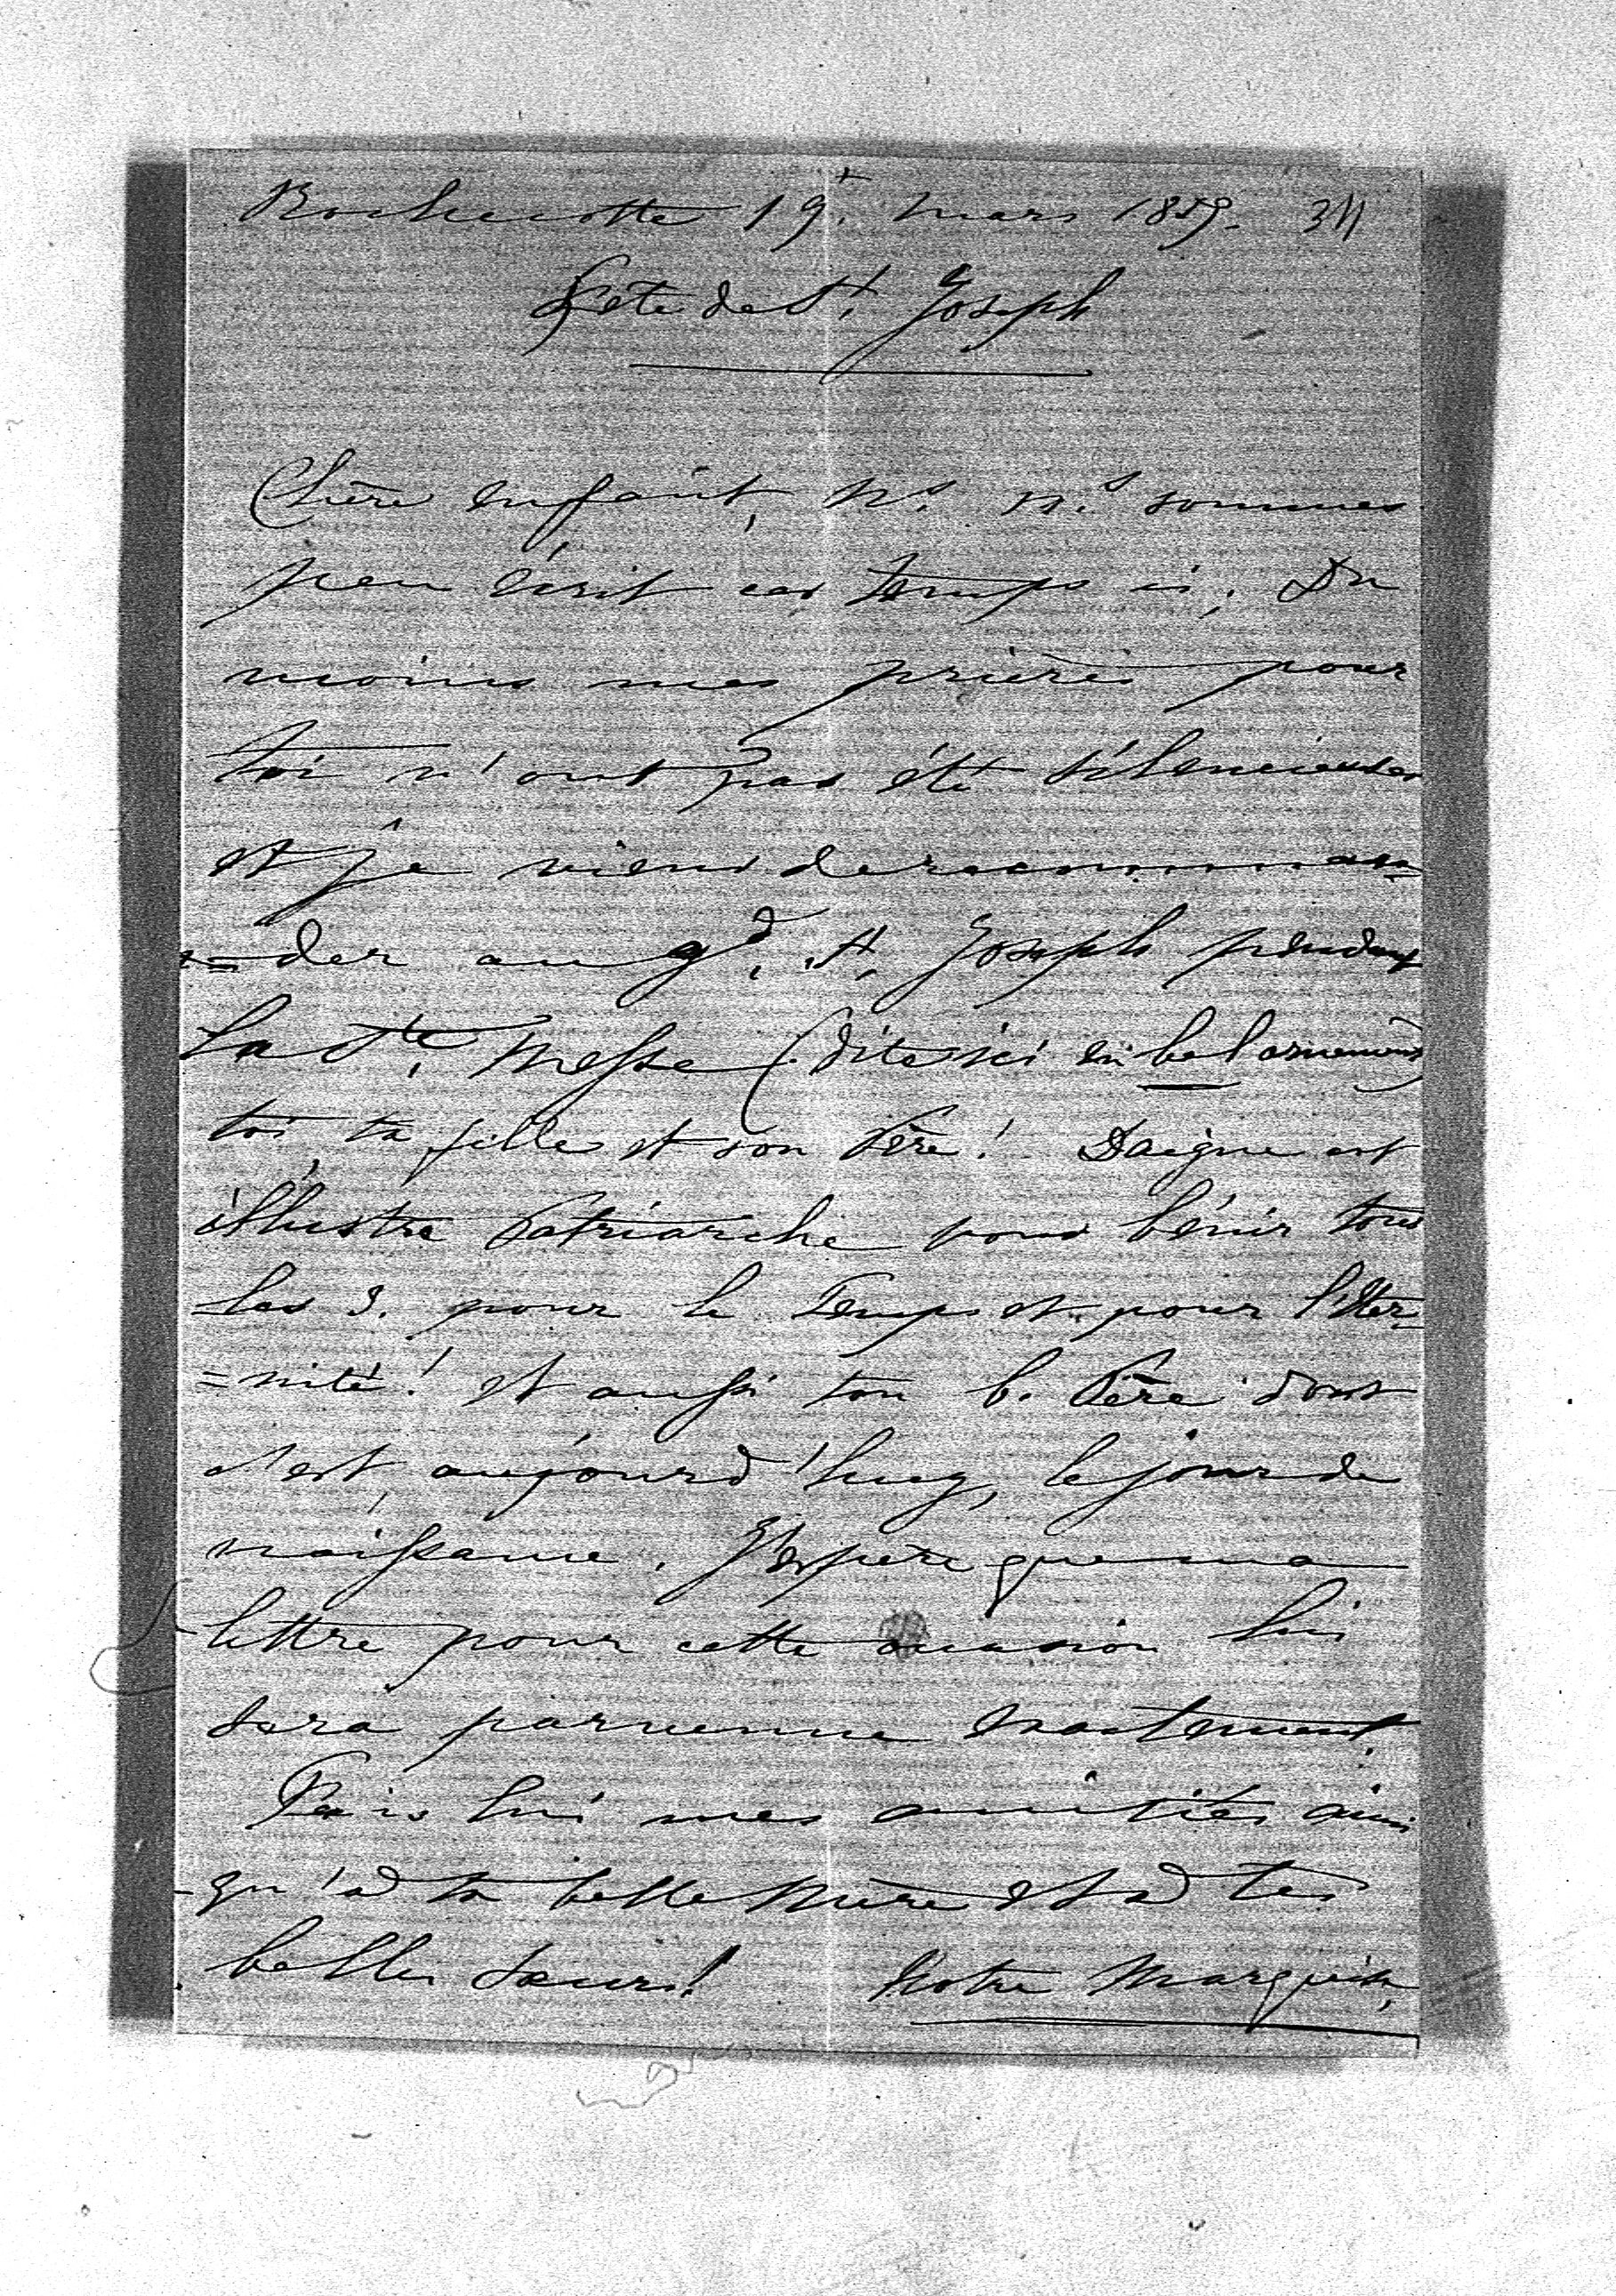 Rochecotte 19. mars 1859. 311
Fête de St. Joseph
Chère enfant, ns. ns. sommes
peu écrit ces temps ci; Du
moins mes prières pour
toi n'ont pas été silencieuses
et je viens de recomman=
=der au gd. St. Joseph pendant
la Ste. Messe (dite ici en bel ornement)
toi, ta fille et son Père! Daigne cet
illustre Patriarche vous bénir tous
les 3. pour le Temps et pour l'éter=
=nité! et aussi ton b. Père dont
c'est, aujourd'huy, le jour de
naissance. J'espère que ma
lettre pour cette occasion lui
sera parvenue exactement.
Fais lui mes amitiés ainsi
qu'à ta belle Mère et à tes
belles Sœurs! Notre Marquise,